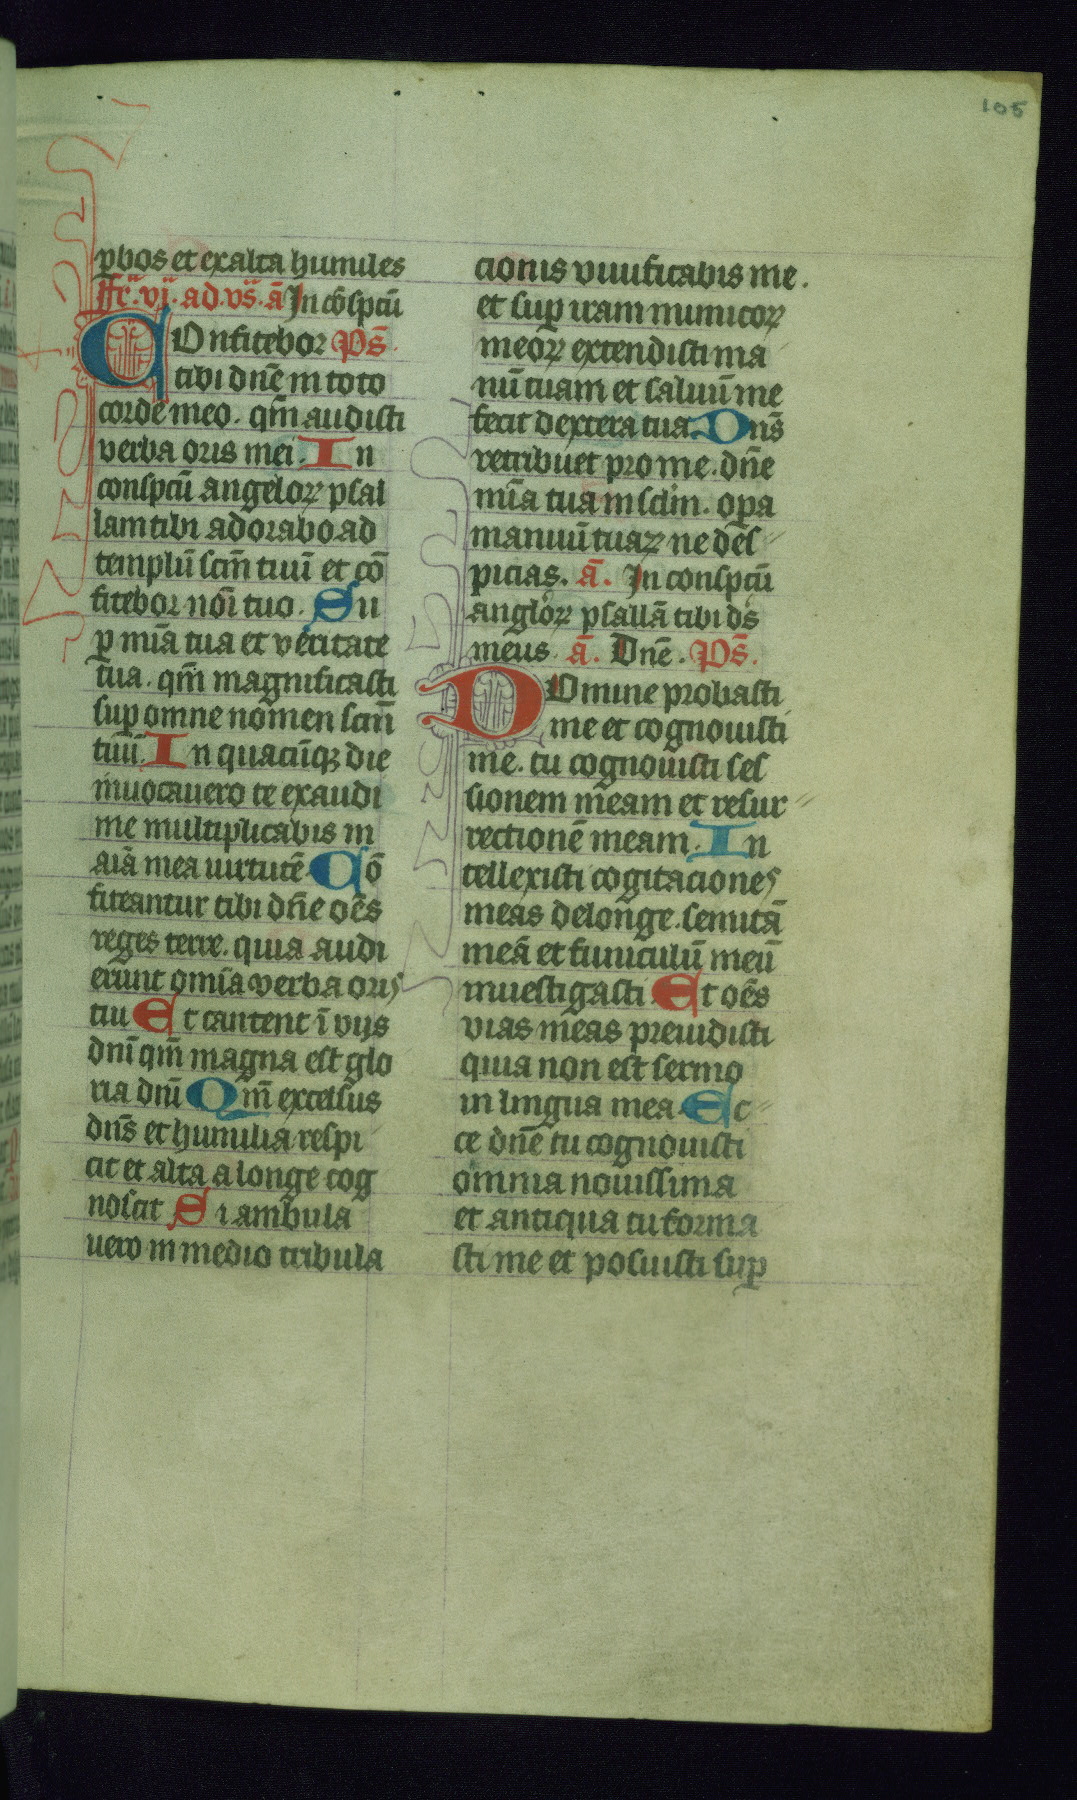 105
pbos et exalta humiles
ffr̄. vj. ad. vs̄. ā In cōspctū
COnfitebor Ps̄
tibi dn̄e in toto
corde meo. qm̄ audisti
verba oris mei. In
conspctū angeloꝝ psal
lam tibi adorabo ad
templū scm̄ tuū et cō
fitebor nōi tuo. Su
ꝑ mīa tua et veritate
tua. qm̄ magnificasti
suꝑ omne nomen scm̄
tuū. In quacūqꝫ die
inuocauero te exaudi
me multiplicabis in
aīā mea uirtutē Cō
fiteantur tibi dn̄e oēs
reges terre. quia audi
erunt omīa verba oris
tui Et cantent ī vijs
dnī qm̄ magna est glo
ria dnī Qm̄ excelsus
dn̄s et humilia respi
cit et alta a longe cog
noscit Si ambula
uero in medio tribula
cionis viuificabis me.
et suꝑ iram inimicoꝝ
meoꝝ extendisti ma
nū tuam et saluū me
fecit dextera tua Dn̄s
retribuet pro me. dn̄e
mīa tua in sclm̄. oꝑa
manuū tuaꝝ ne des
picias. ā. In conspctū
angloꝝ psallā tibi ds̄
meus ā. Dn̄e. Ps̄.
DOmine probasti
me et cognouisti
me. tu cognouisti ses
sionem meam et resur
rectionē meam. In
tellexisti cogitaciones
meas delonge. semitā
meā et funiculū meū
inuestigasti Et oēs
vias meas preuidisti
quia non est sermo
in lingua mea Ec
ce dn̄e tu cognouisti
omnia nouissima
et antiqua tu forma
sti me et posuisti suꝑ